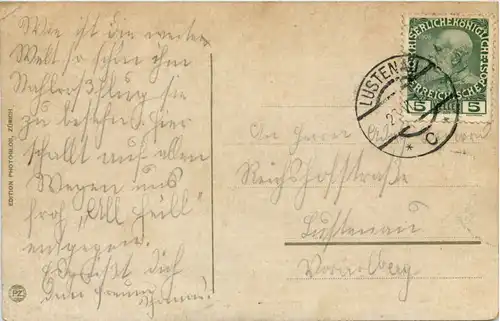 Wie ist die weite
Welt so schön ihn
sie
zu besehn. hier
schallt auf allen
Wegen uns
froh "All Heil"
entgegen.
Es grüßt dich
dein Freund Thomas.
EDITION PHOTOGLOB, ZÜRICH
PZ
KAISERLICHE KÖNIGLICHE
ÖSTERREICHISCHE POST
5 5
LUSTENAU
* C *
An Herrn
Reichshofstraße
Lustenau
Vorarlberg